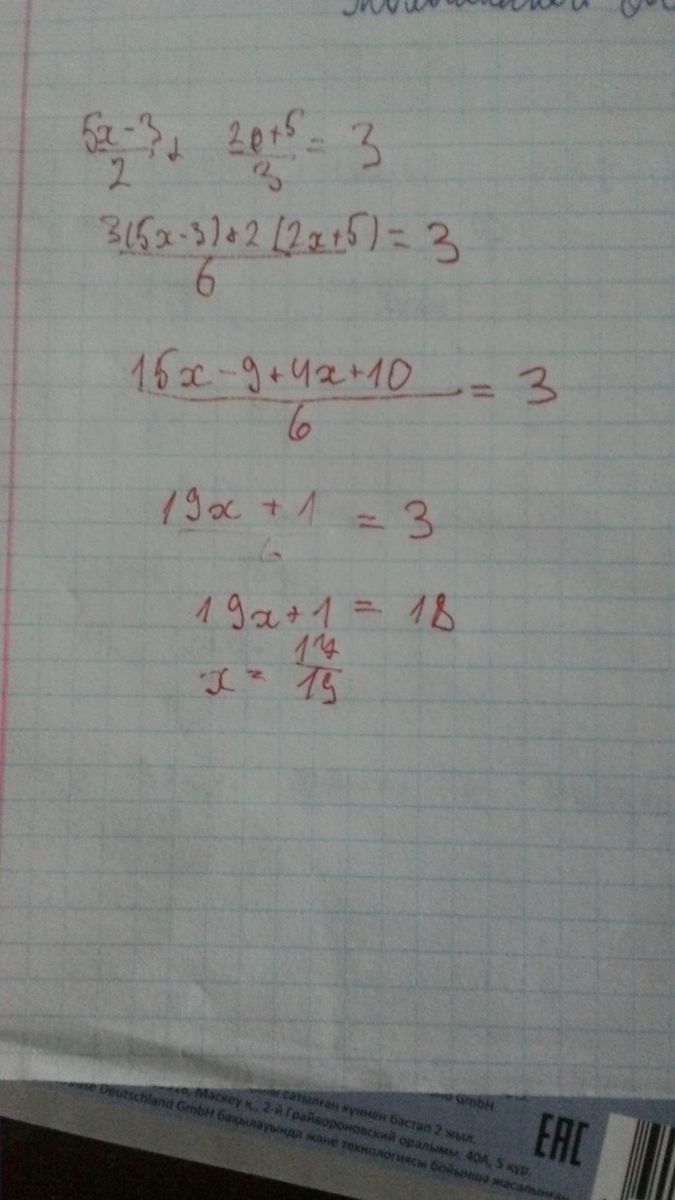 5x-3/2 + 2x+5/3 = 3
3(5x-3)+2(2x+5)/6 = 3
15x-9+4x+10/6 = 3
19x+1/6 = 3
19x+1 = 18
x = 17/19
сатылған күннен бастап 2 жыл.
Маскеу қ., 2-й Грайвороновский оралымы, 40А, 5 құр.
Deutschland GmbH бақылауында және технологиясы бойынша
GmbH.
EAC